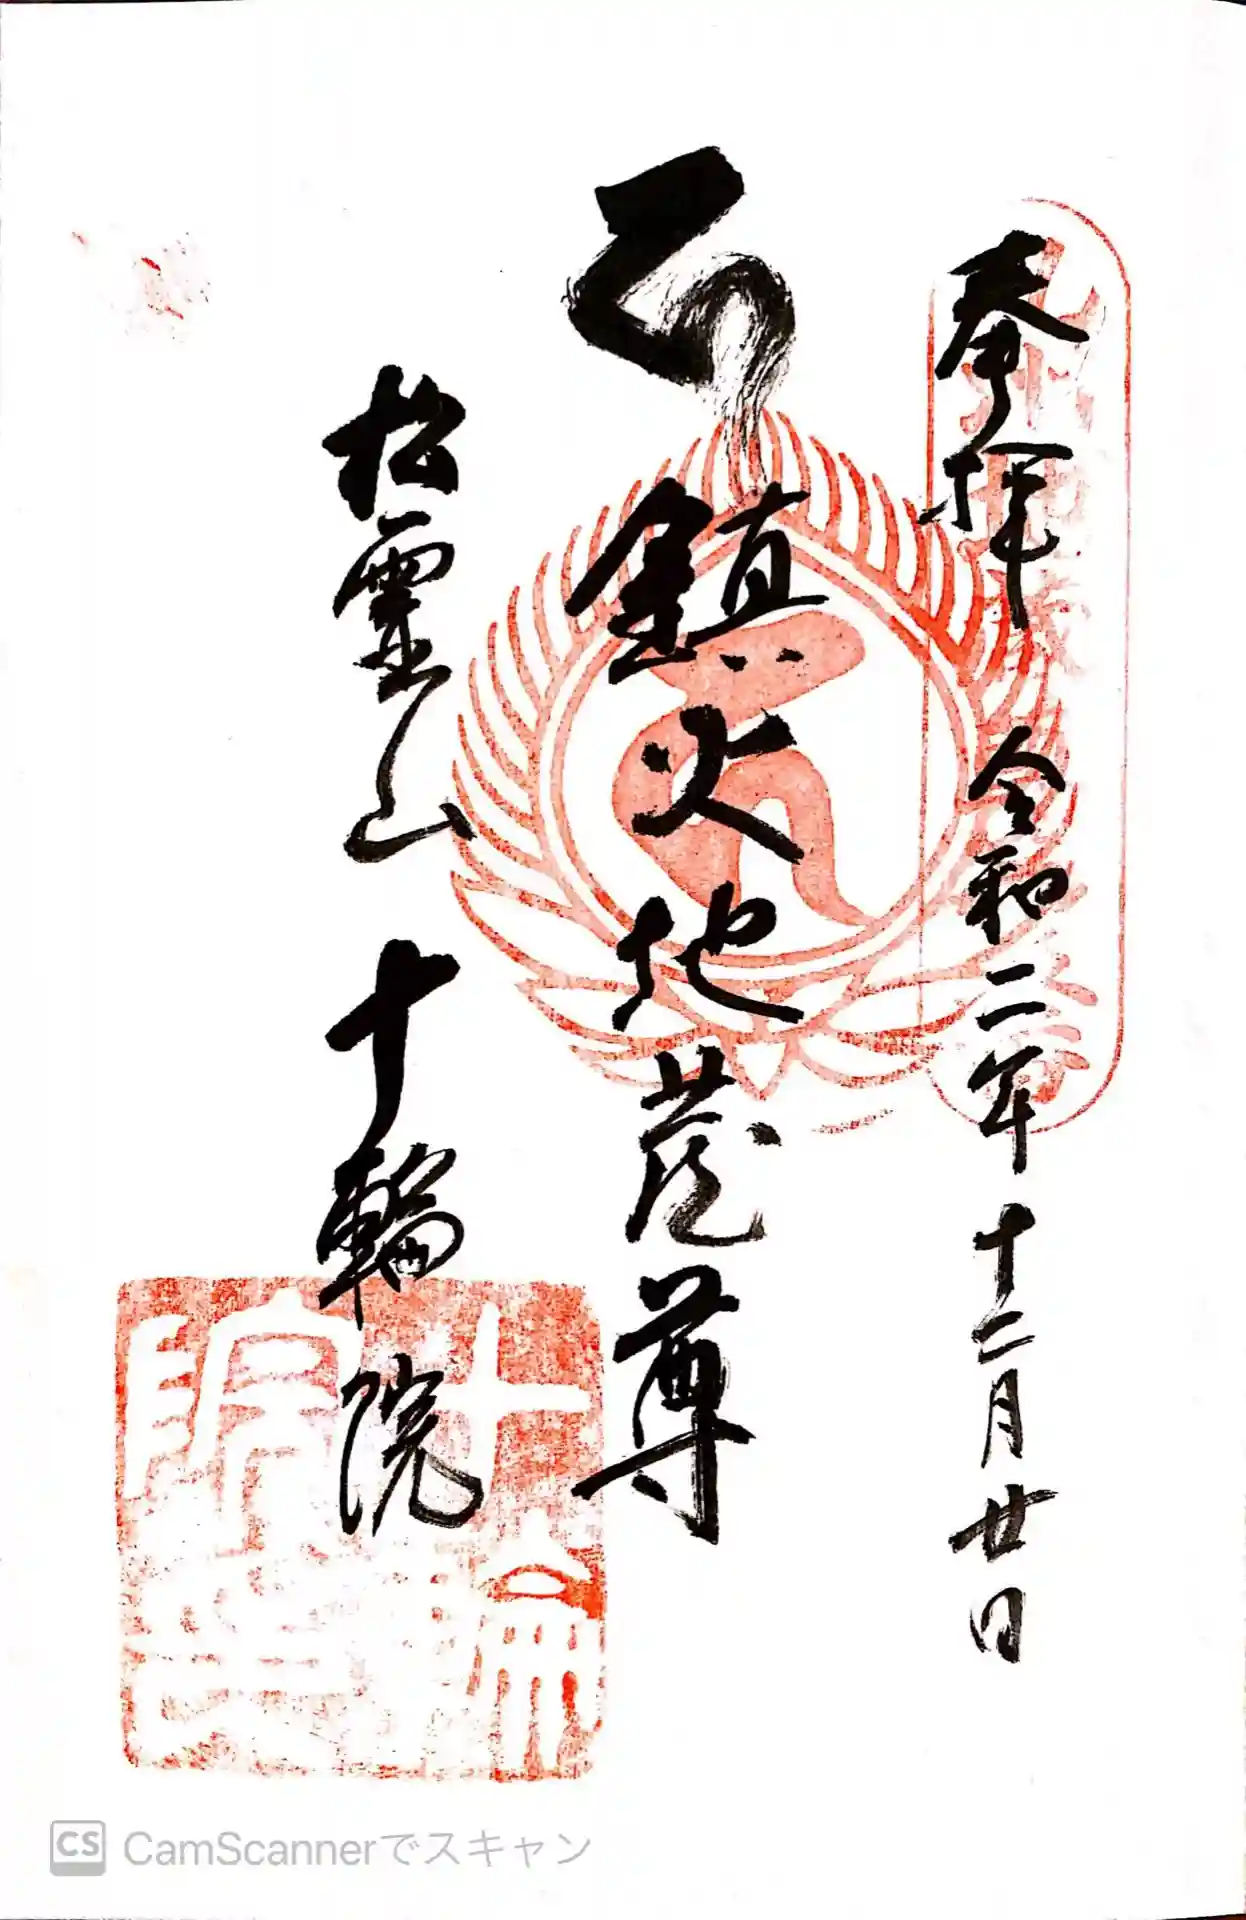 奉拝 令和二年十二月廿日
鎮火地蔵尊
松靈山 十輪院
CS CamScannerでスキャン